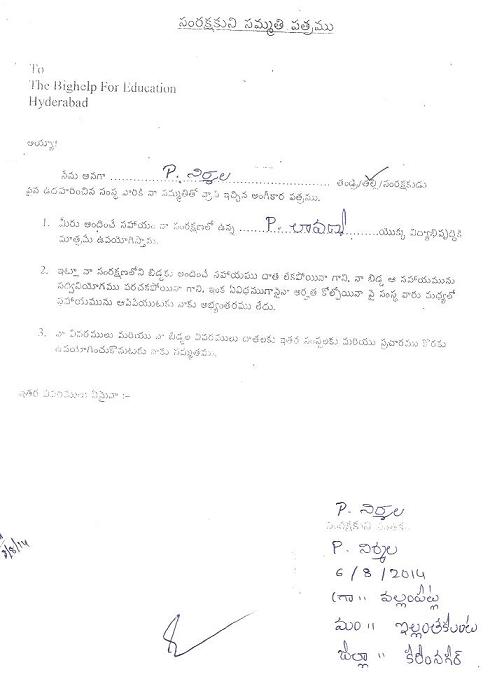 సంరక్షకుని సమ్మతి పత్రము
To
The Bighelp For Education
Hyderabad
అయ్యా!
నేను అనగా ..... P. నిర్మల ..... తండ్రి/తల్లి/సంరక్షకుడు
పైన ఉదహరించిన సంస్థ వారికి నా సమ్మతితో వ్రాసి ఇచ్చిన అంగీకార పత్రము.
1. మీరు అందించే సహాయం నా సంరక్షణలో ఉన్న ..... P. లావణ్య ..... యొక్క విద్యాభివృద్ధికి
మాత్రమే ఉపయోగిస్తాను.
2. ఇట్లూ నా సంరక్షణలోని బిడ్డకు అందించే సహాయము దాత లేకపోయినా గాని, నా బిడ్డ ఆ సహాయమును
సద్వినియోగము పరచకపోయినా గాని, ఇంక ఏవిధముగానైనా అర్హత కోల్పోయినా పై సంస్థ వారు మధ్యలో
సహాయమును ఆపివేయుటకు నాకు అభ్యంతరము లేదు.
3. నా వివరములు మరియు నా బిడ్డల వివరములు దాతలకు ఇతర సంస్థలకు మరియు ప్రచారము కొరకు
ఉపయోగించుకొనుటకు నాకు సమ్మతము.
ఇతర వివరములు ఏమైనా :-
P. నిర్మల
సంరక్షకుని సంతకం
P. నిర్మల
6/8/2014
గ్రా" పల్లంపల్లి
మం" ఇల్లంతకుంట
జిల్లా" కరీంనగర్